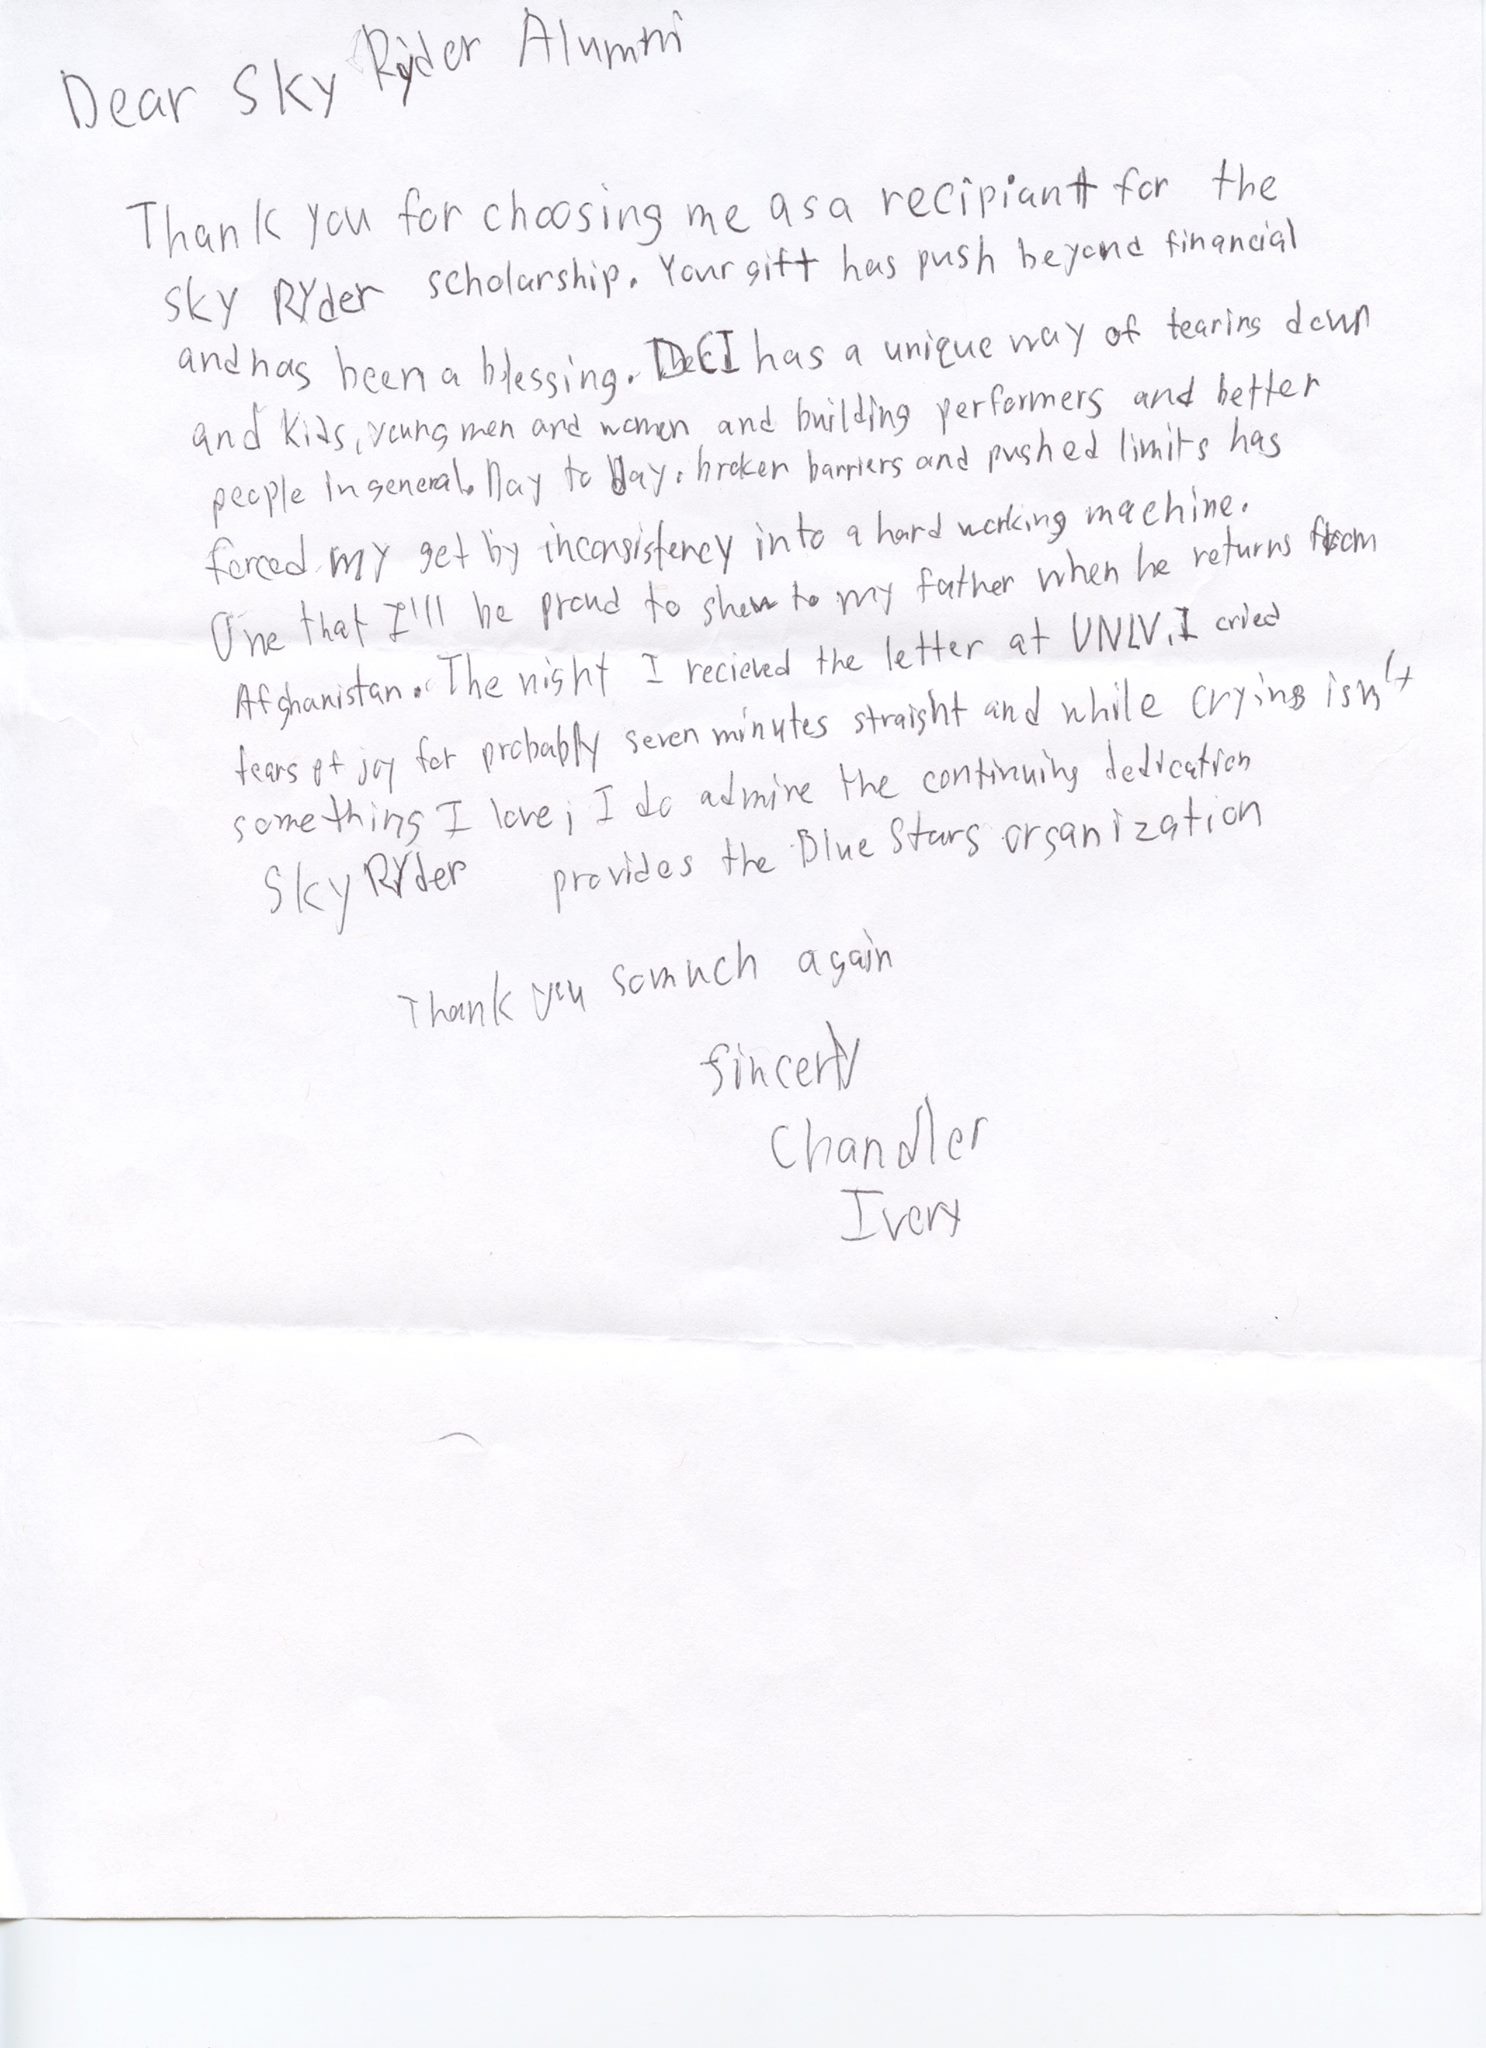 Dear Sky Ryder Alumni
Thank you for choosing me as a recipiant for the
Sky Ryder scholarship. Your gift has push beyond financial
and has been a blessing. DCI has a unique way of tearing down
and kids, young men and women and building performers and better
people in general. Day to Day. broken barriers and pushed limits has
forced my get by inconsistency into a hard working machine.
One that I'll be proud to show to my father when he returns from
Afghanistan. The night I recieved the letter at UNLV, I cried
tears of joy for probably seven minutes straight and while crying isn't
something I love; I do admire the continuing dedication
Sky Ryder provides the Blue Stars organization
Thank you so much again
Sincerly
Chandler
Ivery